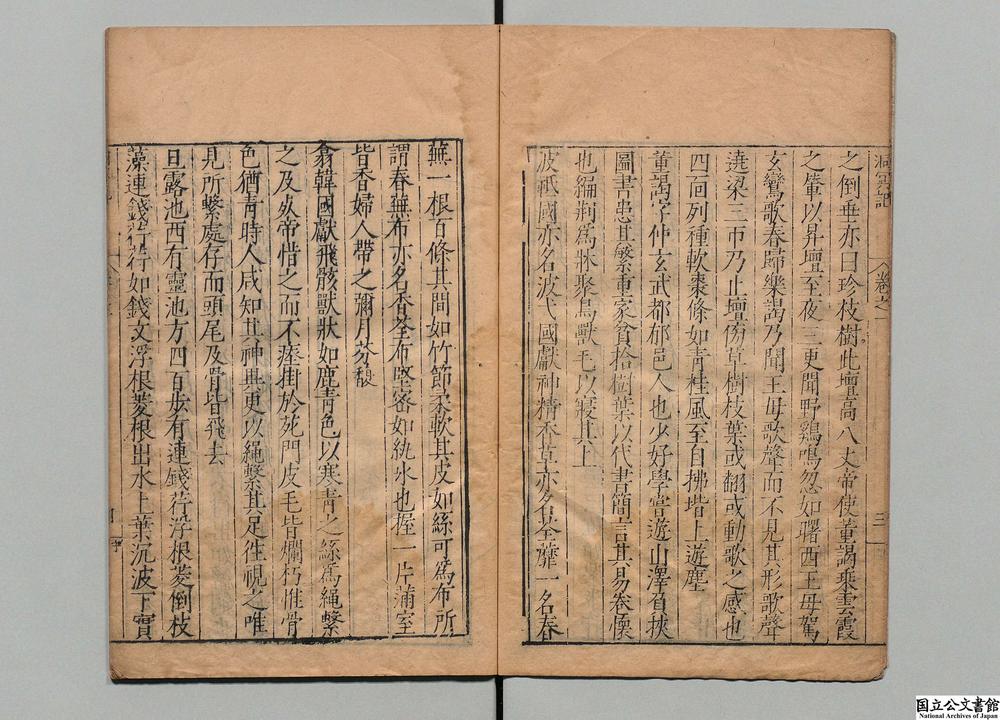 洞冥記 卷之一 三
之倒垂亦曰珍枝樹此壇高八丈帝使董謁乘雲霞
之輦以昇壇至夜三更聞野鷄鳴忽如曙西王母駕
玄鸞歌春歸樂謁乃聞王母歌聲而不見其形歌聲
遶梁三帀乃止壇傍草樹枝葉或翻或動歌之感也
四面列種軟棗條如青桂風至自拂堦上遊塵
董謁字仲玄武都郁邑人也少好學嘗遊山澤負挾
圖書患其繁重家貧拾樹葉以代書簡言其易卷懷
也編荆爲牀聚鳥獸毛以寢其上
波祇國亦名波弋國獻神精香草亦名荃蘼一名春
蕪一根百條其間如竹節柔軟其皮如絲可爲布所
謂春蕪布亦名香荃布堅密如紈氷也握一片滿室
皆香婦人帶之彌月芬馥
翕韓國獻飛骸獸狀如鹿青色以寒青之絲爲繩繫
之及死帝惜之而不瘞掛於苑門皮毛皆爛朽惟骨
色猶青時人咸知其神異更以繩繫其足往視之唯
見所繫處存而頭尾及骨皆飛去
旦露池西有靈池方四百步有連錢荇浮根菱倒枝
藻連錢荇荇如錢文浮根菱根出水上葉沉波下實
国立公文書館
National Archives of Japan